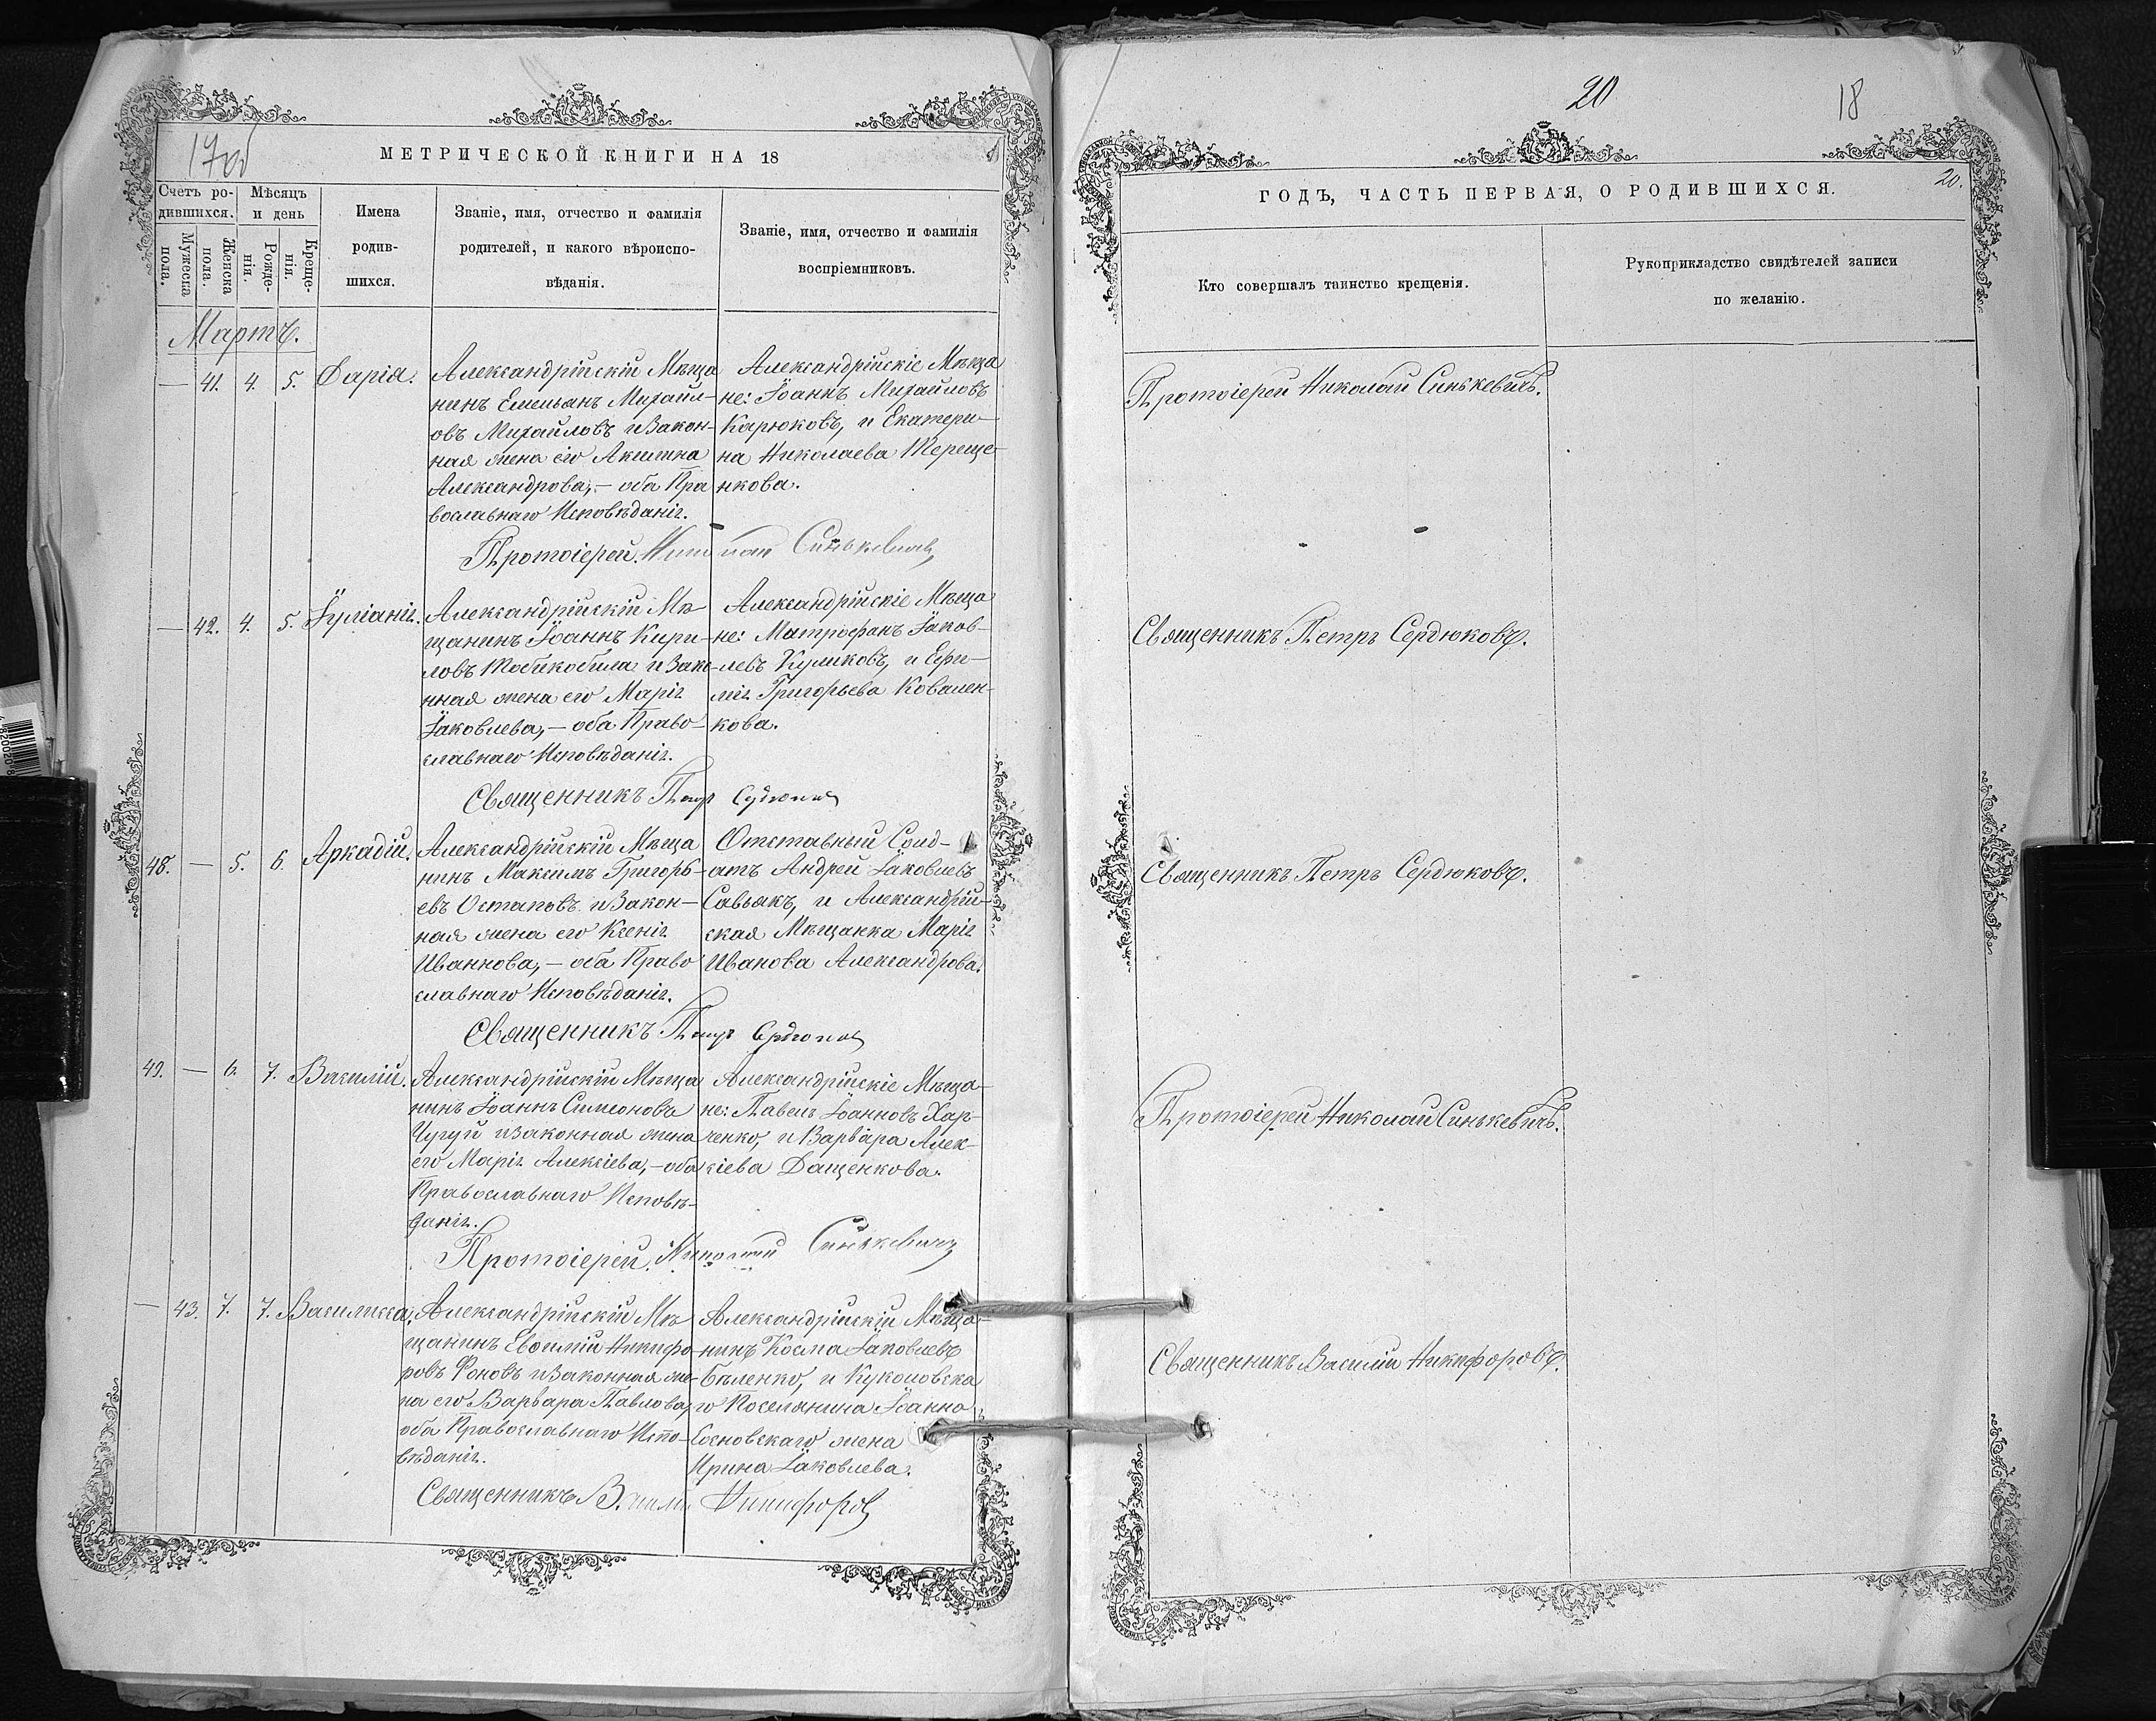 МЕТРИЧЕСКОЙ КНИГИ НА 18
Счетъ ро-
дившихся.
Мѣсяцъ
и день
Мужеска
пола.
Женска
пола.
Рожде-
нія.
Креще-
нія.
Имена
родив-
шихся.
Званіе, имя, отчество и фамилія
родителей, и какого вѣроиспо-
вѣданія.
Званіе, имя, отчество и фамилія
воспріемниковъ.
Мартъ.
— 41. 4. 5. Дарія.
Александрійскій Мѣща
нинъ Емельянъ Михайл-
овъ Михайловъ и Закон-
ная жена его Акилина
Александрова, — оба Пра
вославнаго Исповѣданія.
Александрійскіе Мѣща
не: Іоаннъ Михайловъ
Карюковъ, и Екатери-
на Николаева Тереще-
нкова.
Протоіерей Николай Синькевичъ
— 42. 4. 5. Іуліанія.
Александрійскій Мѣ-
щанинъ Іоаннъ Кири-
ловъ и Зако-
нная жена его Марія
Іаковлева, — оба Право-
славнаго Исповѣданія.
Александрійскіе Мѣща
не: Митрофанъ Іаков-
левъ Куликовъ, и Ефи-
мія Григорьева Ковален-
кова.
Священникъ Петръ Сердюковъ
48. — 5. 6. Аркадій.
Александрійскій Мѣща
нинъ Максимъ Григорь-
евъ Остаповъ и Закон-
ная жена его Ксенія
Иваннова, — оба Право
славнаго Исповѣданія.
Отставный Солд-
атъ Андрей Іаковлевъ
Савьякъ, и Александрій-
ская Мѣщанка Марія
Иванова Александрова.
Священникъ Петръ Сердюковъ
49. — 6. 7. Василій.
Александрійскій Мѣща
нинъ Іоаннъ Симеонова
Чугуй и законная жена
его Марія Алексіева, — оба
Православнаго Исповѣ-
данія.
Александрійскіе Мѣща-
не: Павелъ Іоанновъ Хар-
ченко, и Варвара Алек-
сіева Дащенкова.
Протоіерей Николай Синькевичъ
— 43. 7. 7. Василисса.
Александрійскій Мѣ
щанинъ Евфимій Никифо
ровъ Фоновъ и законная же-
на его Варвара Павлова,
оба Православнаго Испо-
вѣданія.
Александрійскій Мѣща-
нинъ Косма Іаковлевъ
Бѣленко, и Куколовска
го Поселянина Іоанна
Сосновскаго жена
Ирина Іаковлева.
Священникъ Васил. Никифоровъ
20
18
20.
ГОДЪ, ЧАСТЬ ПЕРВАЯ, О РОДИВШИХСЯ.
Кто совершалъ таинство крещенія.
Рукоприкладство свидѣтелей записи
по желанію.
Протоіерей Николай Синькевичъ.
Священникъ Петръ Сердюковъ.
Священникъ Петръ Сердюковъ.
Протоіерей Николай Синькевичъ.
Священникъ Василій Никифоровъ.